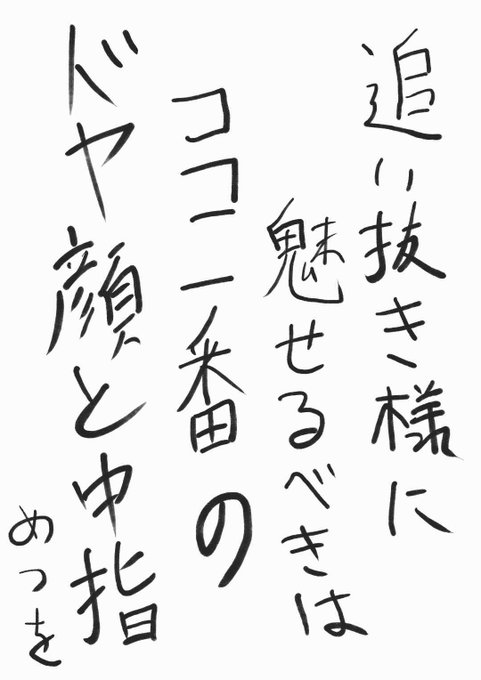 追い抜き様に
魅せるべきは
ココ一番の
ドヤ顔と中指
めつを